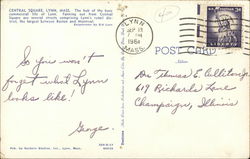 CENTRAL SQUARE, LYNN, MASS. The hub of the busy
commercial life of Lynn. Fanning out from Central
Square are several streets comprising Lynn's retail
district, the largest between Boston and Montreal.
LYNN
SEP 13
PM
1961
MASS.
POST CARD
So you won't
forget what Lynn
looks like.
George.
Dr. Thomas E.
619 Richards Lane
Champaign, Illinois